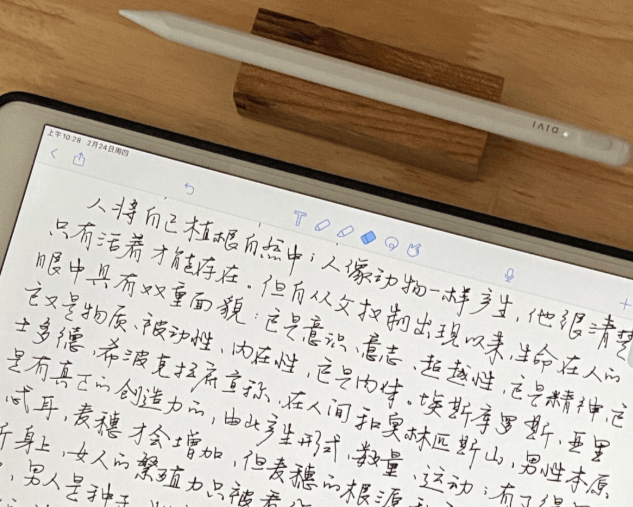 DIVI
上午10:28 2月24日周四
人将自己植根自然中；人像动物一样产生，他很清楚
只有活着才能存在。但自从父权制出现以来，生命在人的
眼中具有双重面貌：它是意识、意志、超越性，它是精神；它
它又是物质、被动性、内在性，它是肉体。埃斯库罗斯，亚里
士多德，希波克拉底宣称，在人间和奥林匹斯山，男性本原
是有真正的创造力的，由此产生形式，数量、运动；有了得
忒耳，麦穗才会增加，但麦穗的根源和
身上，女人的繁殖力只被看作
，男人是种子